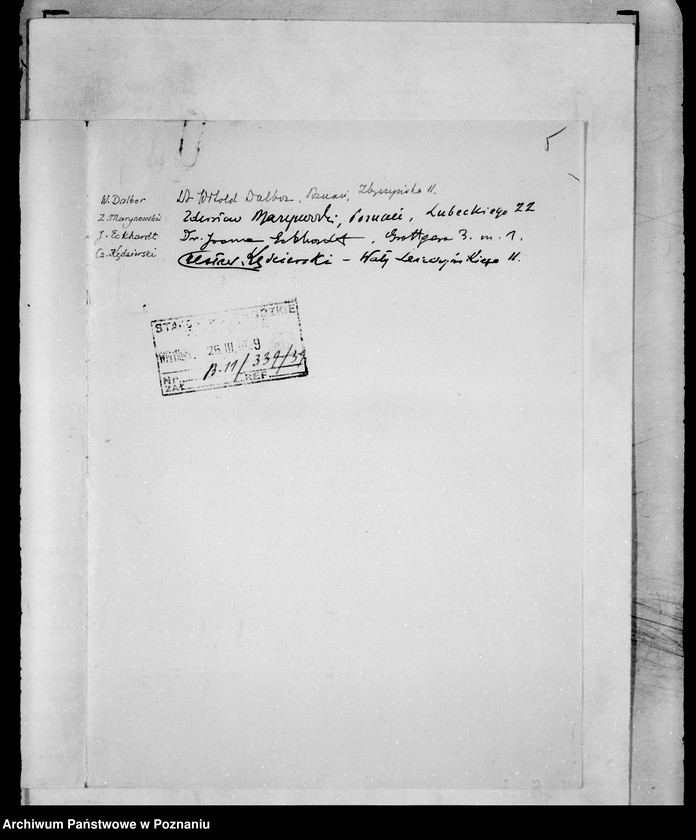 5
W. Dalbor Dr Witold Dalbor, Poznań, Zbąszyńska 11.
Z. Marynowski Zdzisław Marynowski, Poznań, Lubeckiego 22
J. Eckhardt Dr. Joanna Eckhardt, Grottgera 3. m. 1.
Cz. Kędzierski Czesław Kędzierski – Wały Leszczyńskiego 11.
26.III.1939
B-11/339/39
Nr.
ZAŁ. REF.
Archiwum Państwowe w Poznaniu